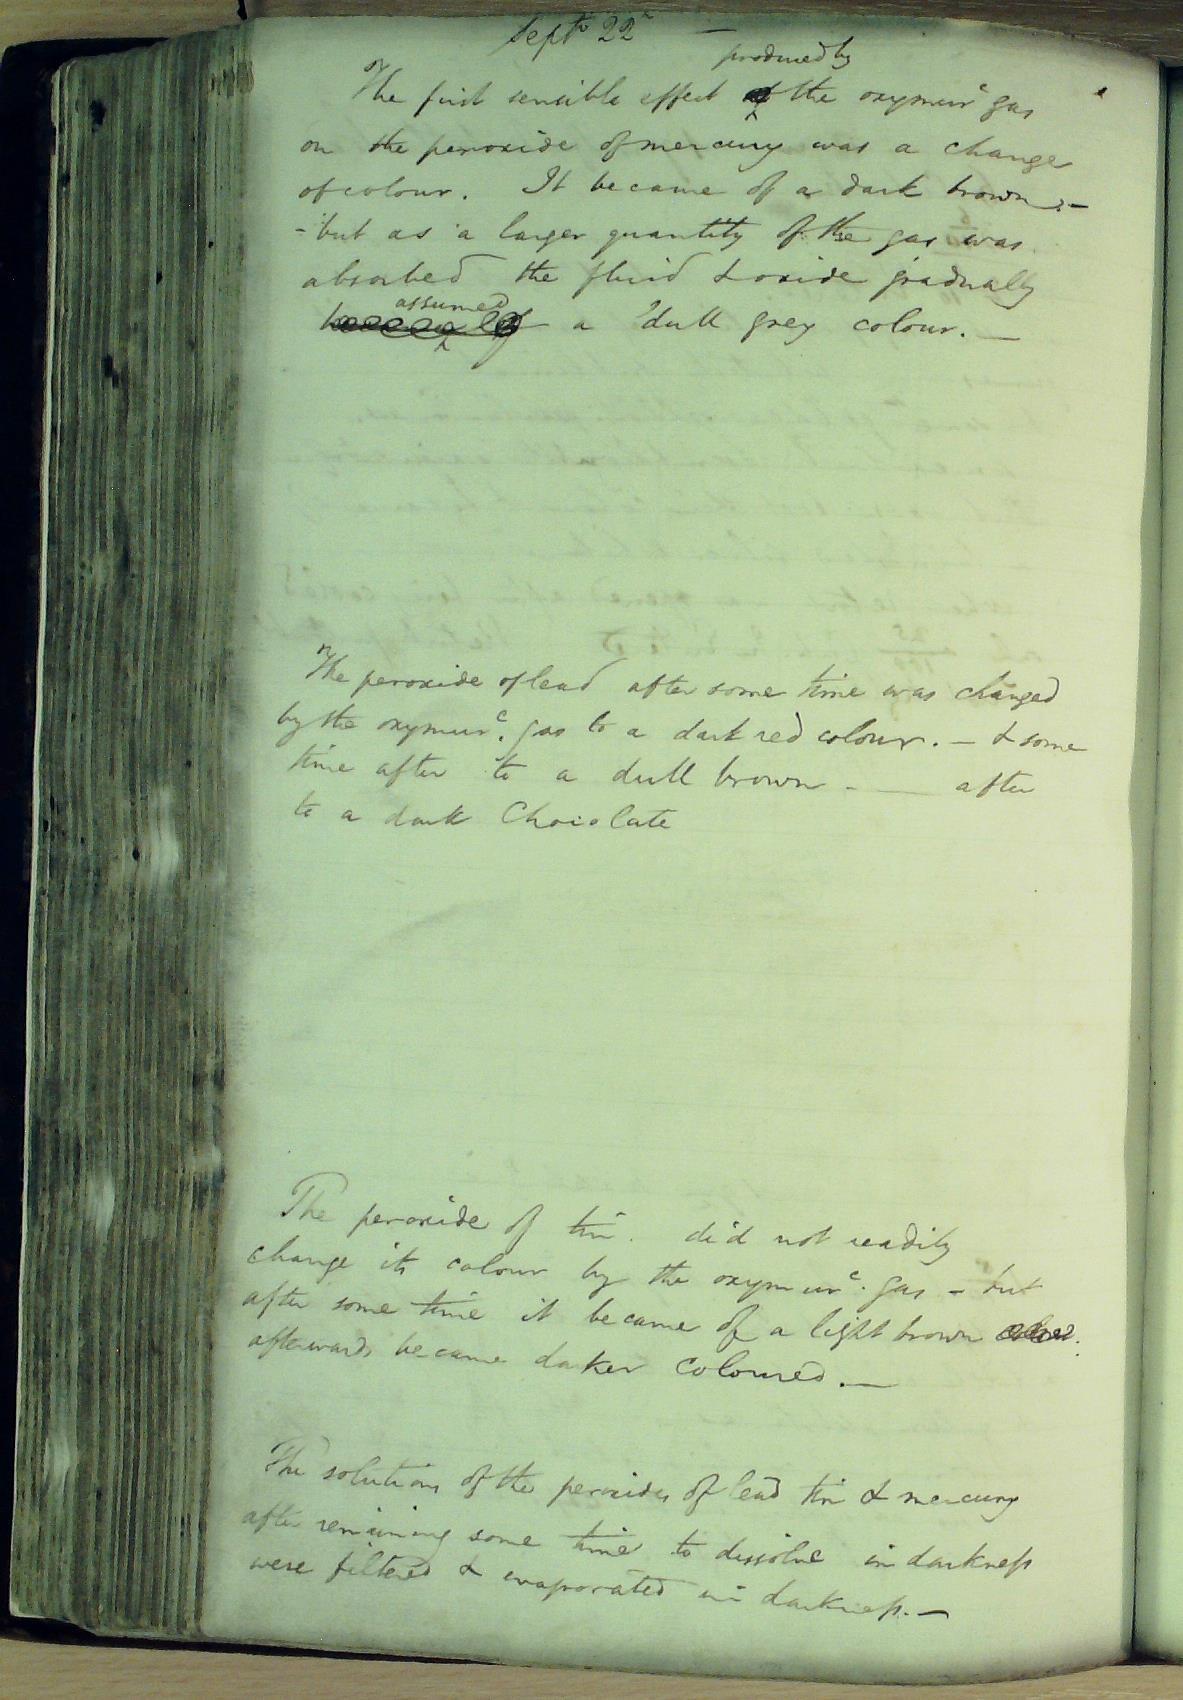 Septr 22d —
produced by
The first sensible effect of the oxymurc gas
on the peroxide of mercury was a change
of colour. It became of a dark brown. –
– but as a larger quantity of the gas was
absorbed the fluid & oxide gradually
assumed
a dull grey colour. —
The peroxide of lead after some time was changed
by the oxymurc. gas to a dark red colour. – & some
time after to a dull brown – — after
to a dark Chocolate
The peroxide of tin. did not readily
change its colour by the oxymurc. gas – but
after some time it became of a light brown
afterwards became darker coloured. —
The solutions of the peroxides of lead tin & mercury
after remaining some time to dissolve in darkness
were filtered & evaporated in darkness. —